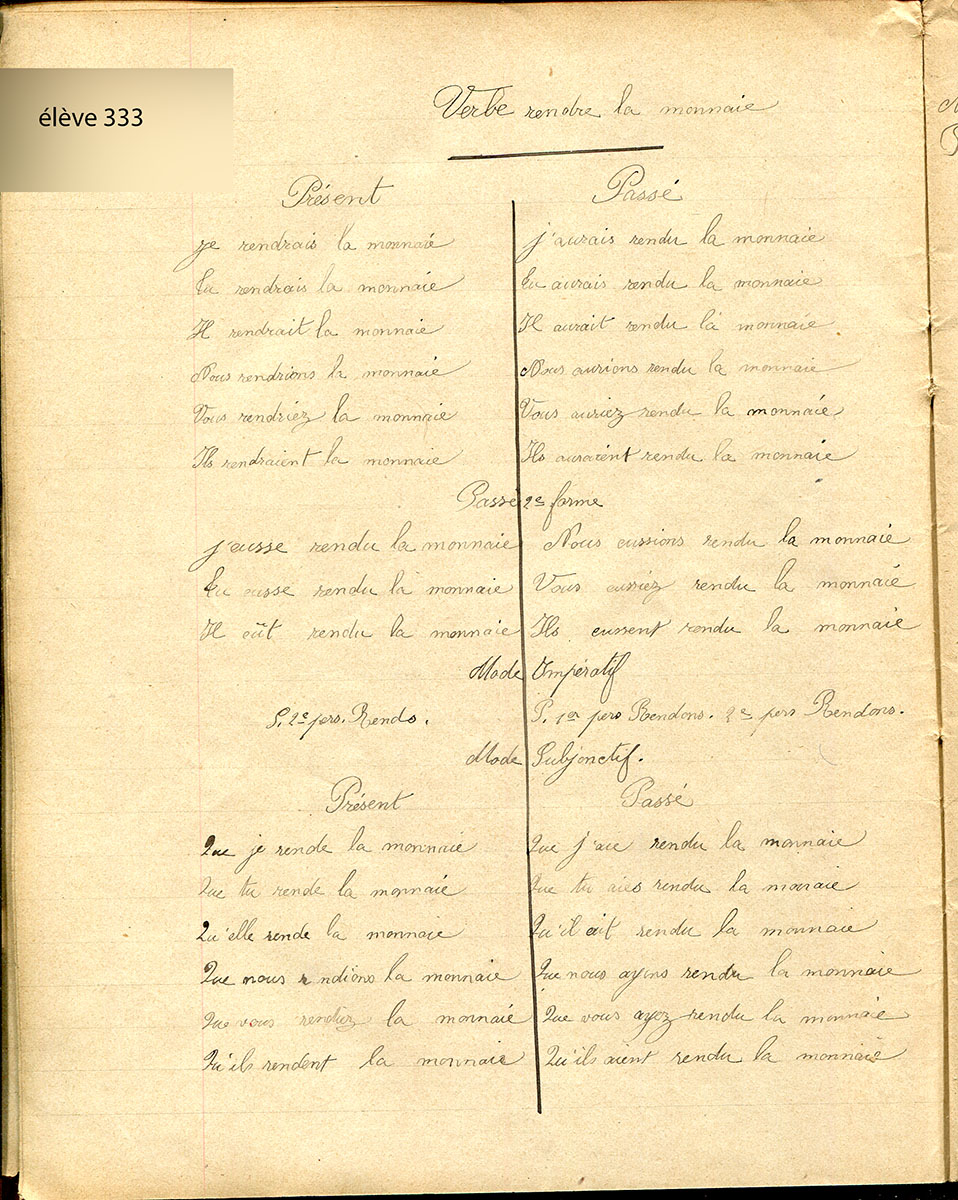 élève 333
Verbe rendre la monnaie
Présent
Passé
je rendrais la monnaie
j'aurais rendu la monnaie
tu rendrais la monnaie
tu aurais rendu la monnaie
Il rendrait la monnaie
Il aurait rendu la monnaie
Nous rendrions la monnaie
Nous aurions rendu la monnaie
Vous rendriez la monnaie
Vous auriez rendu la monnaie
Ils rendraient la monnaie
Ils auraient rendu la monnaie
Passé 2e forme
j'eusse rendu la monnaie
Nous eussions rendu la monnaie
tu eusse rendu la monnaie
Vous rendu la monnaie
Il eût rendu la monnaie
Ils eussent rendu la monnaie
Mode Impératif
S. 2e pers. Rends.
P. 1re pers Rendons. 2e pers Rendons.
Mode Subjonctif.
Présent
Passé
Que je rende la monnaie
Que j'aie rendu la monnaie
Que tu rende la monnaie
Que tu aies rendu la monnaie
Qu'elle rende la monnaie
Qu'il ait rendu la monnaie
Que nous rendions la monnaie
Que nous ayons rendu la monnaie
Que vous rendiez la monnaie
Que vous ayez rendu la monnaie
Qu'ils rendent la monnaie
Qu'ils aient rendu la monnaie